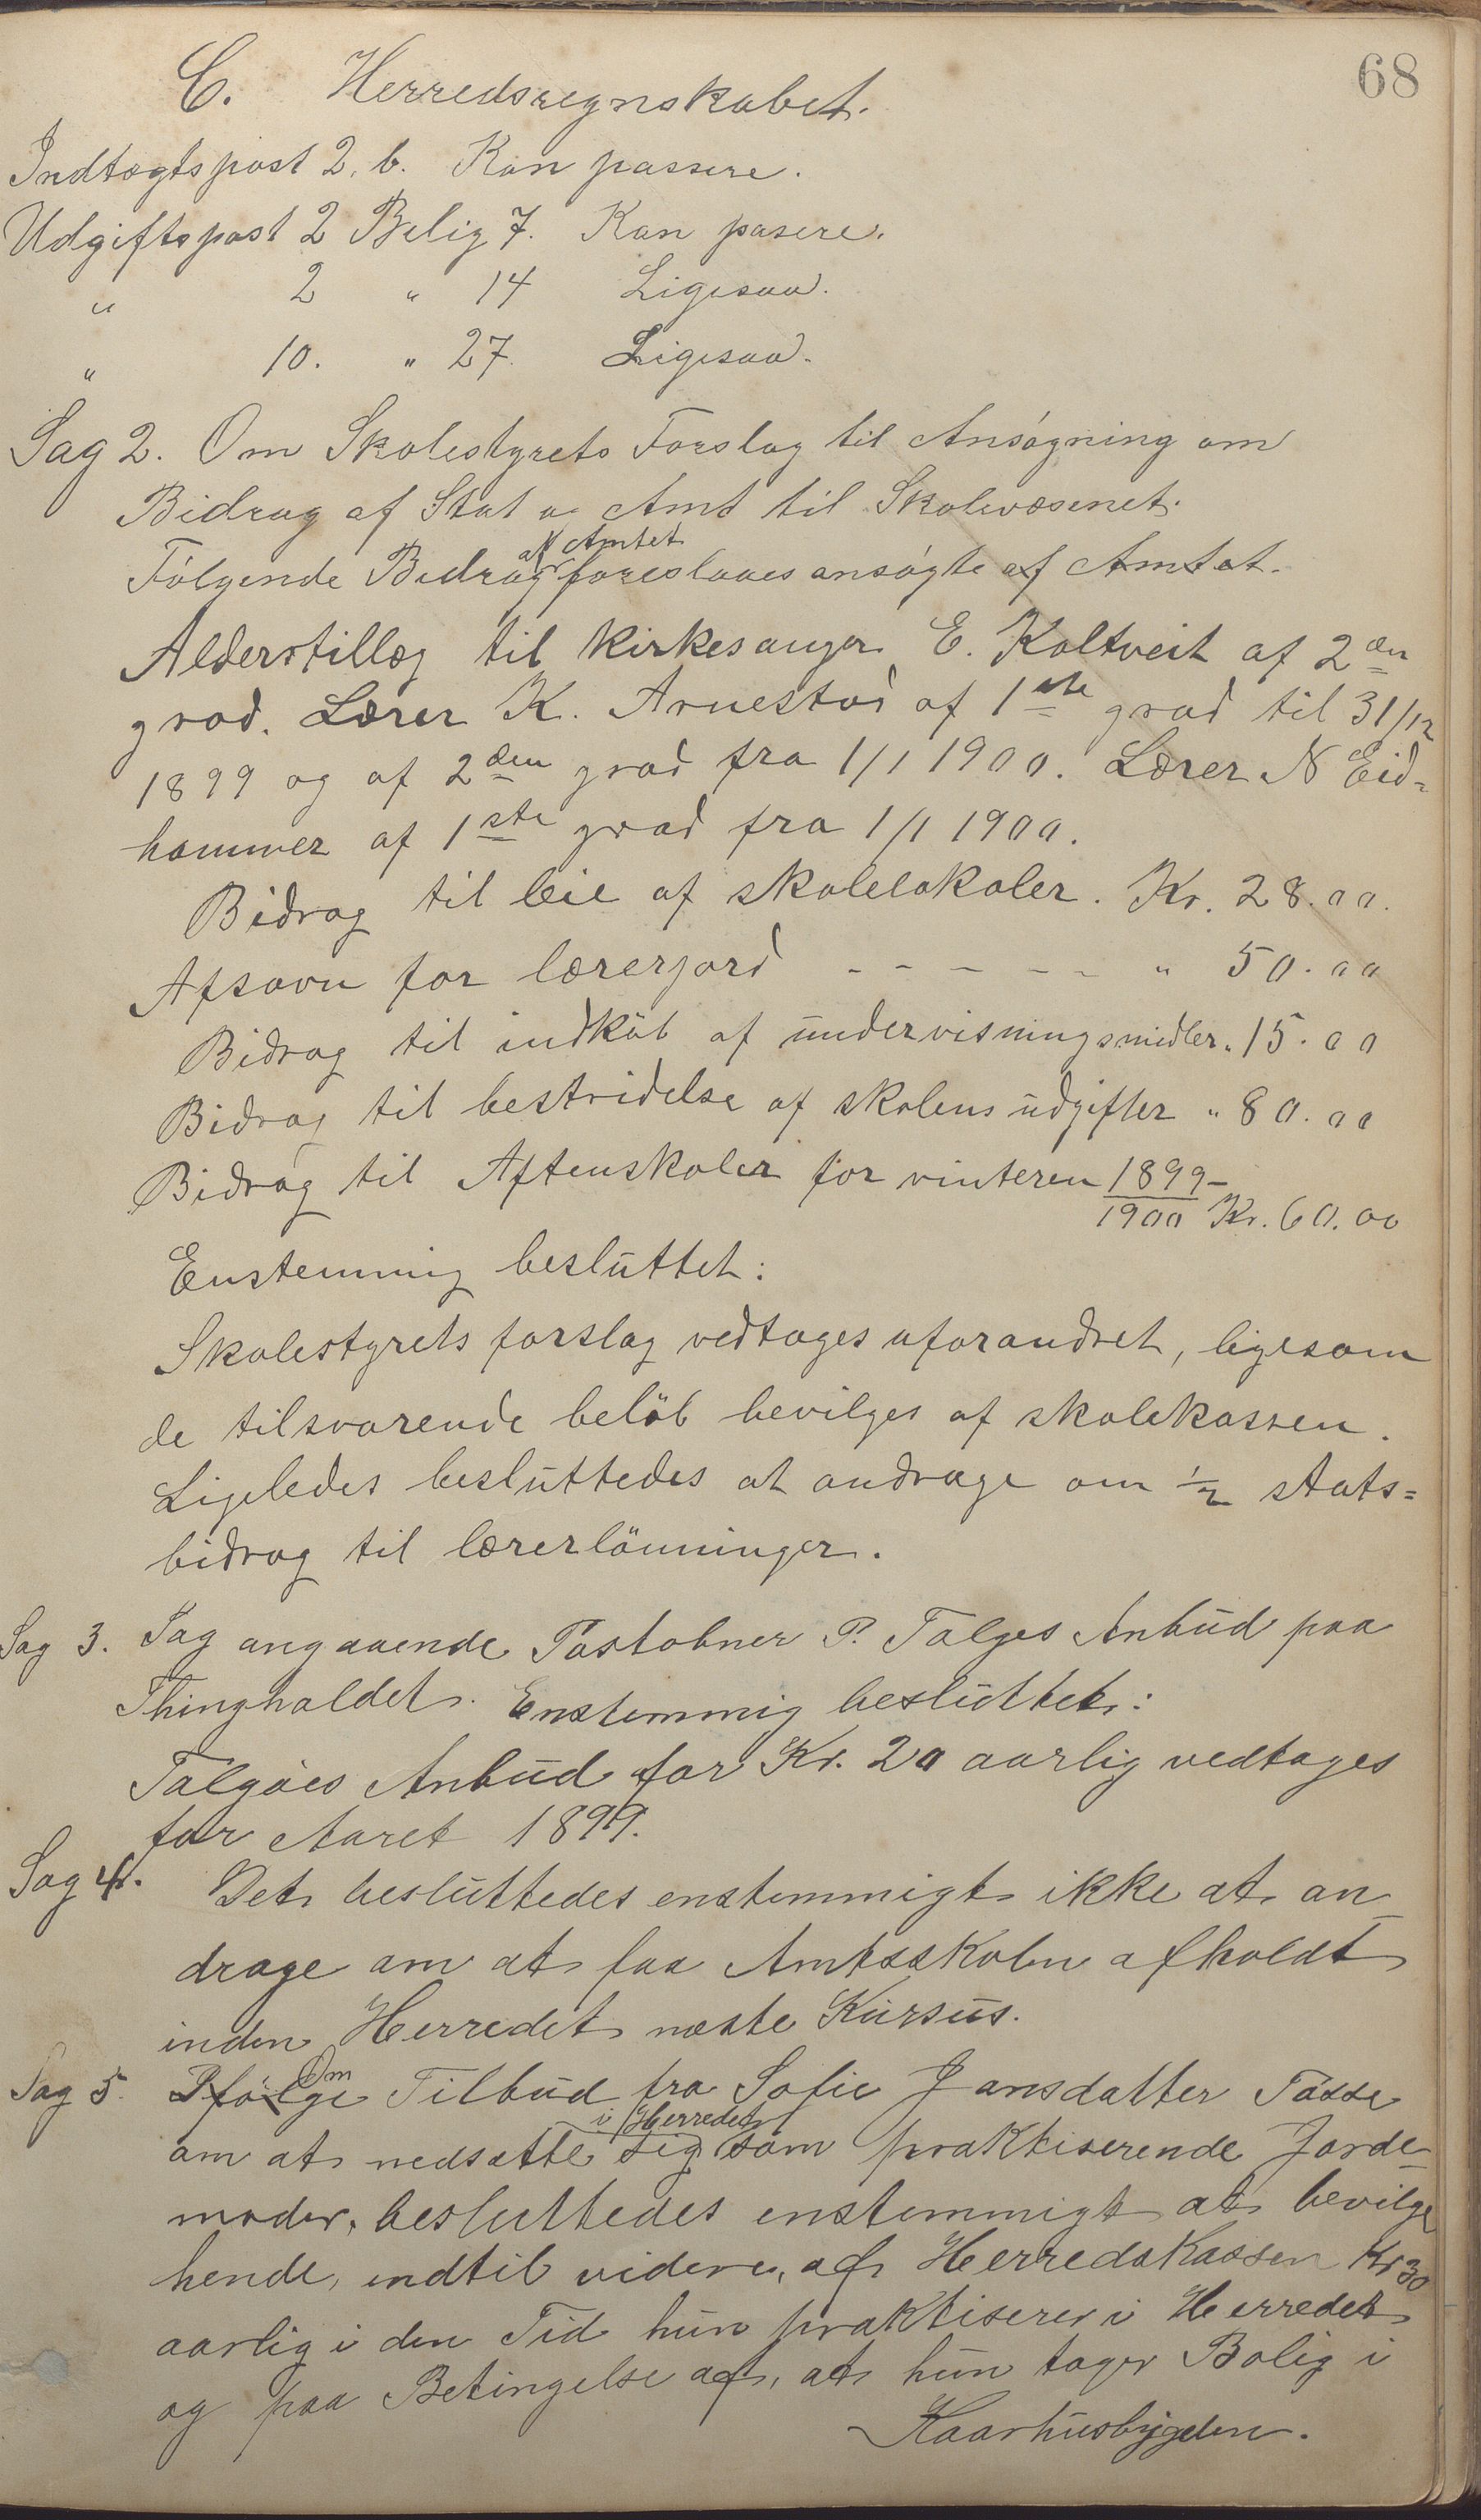 68
C. Herredsregnskabet.
Indtægtspost 2, b. Kan passere.
Udgiftspost 2 Belig 7. Kan pasere.
" 2 " 14 Ligesaa.
" 10. " 27. Ligesaa.
Sag 2. Om Skolestyrets Forslag til Ansøgning om
Bidrag af Stat og Amt til Skolevæsenet.
Følgende Bidrag af Amtet foreslaaes ansøgte af Amtet.
Alderstillæg til kirkesanger E. Koltveit af 2den
grad. Lærer K. Arnestad af 1ste grad til 31/12
1899 og af 2den grad fra 1/1 1900. Lærer N Eid=
hammer af 1ste grad fra 1/1 1900.
Bidrag til leie af skolelokaler. Kr. 28.00.
Afsavn for lærerjord - - - - - " 50.00
Bidrag til indköb af undervisningsmidler " 15.00
Bidrag til bestridelse af skolens udgifter " 80.00
Bidrag til Aftenskoler for vinteren 1899-
1900 Kr. 60.00
Enstemmig besluttet:
Skolestyrets forslag vedtages uforandret, ligesom
de tilsvarende belöb bevilges af skolekassen.
Ligeledes besluttedes at andrage om 1/2 stats=
bidrag til lærerlönninger.
Sag 3. Sag angaaende Postobner P. Talges Anbud paa
Thingholdet. Enstemmig besluttet:
Talgöes Anbud for Kr. 20 aarlig vedtages
for Aaret 1899.
Sag 4. Det besluttedes enstemmigt ikke at an-
drage om at faa Amtsskolen afholdt
inden Herredet næste Kursus.
Sag 5. Ifølge Om Tilbud fra Sofie Jansdatter Tøsse
om at nedsætte sig i Herredet som praktiserende Jorde-
moder, besluttedes enstemmigt at bevilge
hende, indtil videre, af Herredskassen Kr 30
aarlig i den Tid hun praktiserer i Herredet
og paa Betingelse af, at hun tager Bolig i
Haarhusbygden.